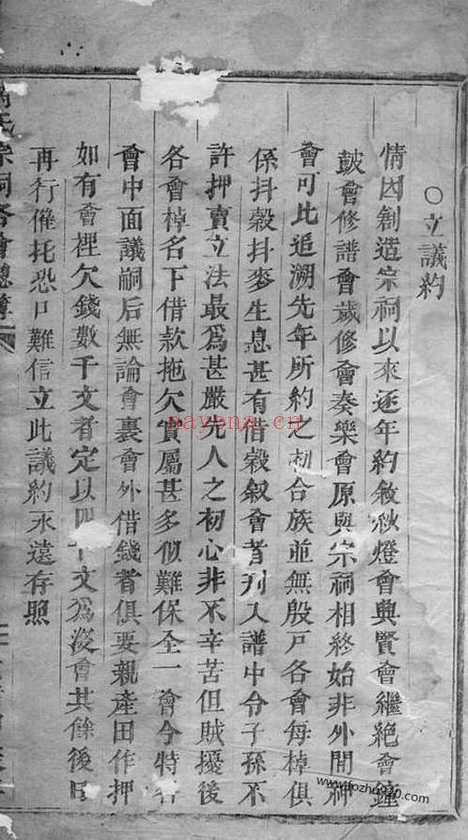 ○立議約
情因創造宗祠以來逐年約敘秋燈會興賢會繼絶會鐘
皷會修譜會歲修會奏樂會原與宗祠相終始非外間神
會可比追溯先年所約之初合族並無殷戸各會每棹俱
係抖穀抖麥生息甚有借穀敘會者刋入譜中令子孫不
許押賣立法最爲甚嚴先人之初心非不辛苦但賊擾後
各會棹名下借款拖欠實屬甚多似難保全一會今特各
會中面議嗣后無論會裏會外借錢者俱要親産田作押
如有會裡欠錢數千文者定以四千文爲沒會其餘後
再行催托恐口難信立此議約永遠存照
氏宗祠各會總簿
nayona.cn
www.fozhu920.com